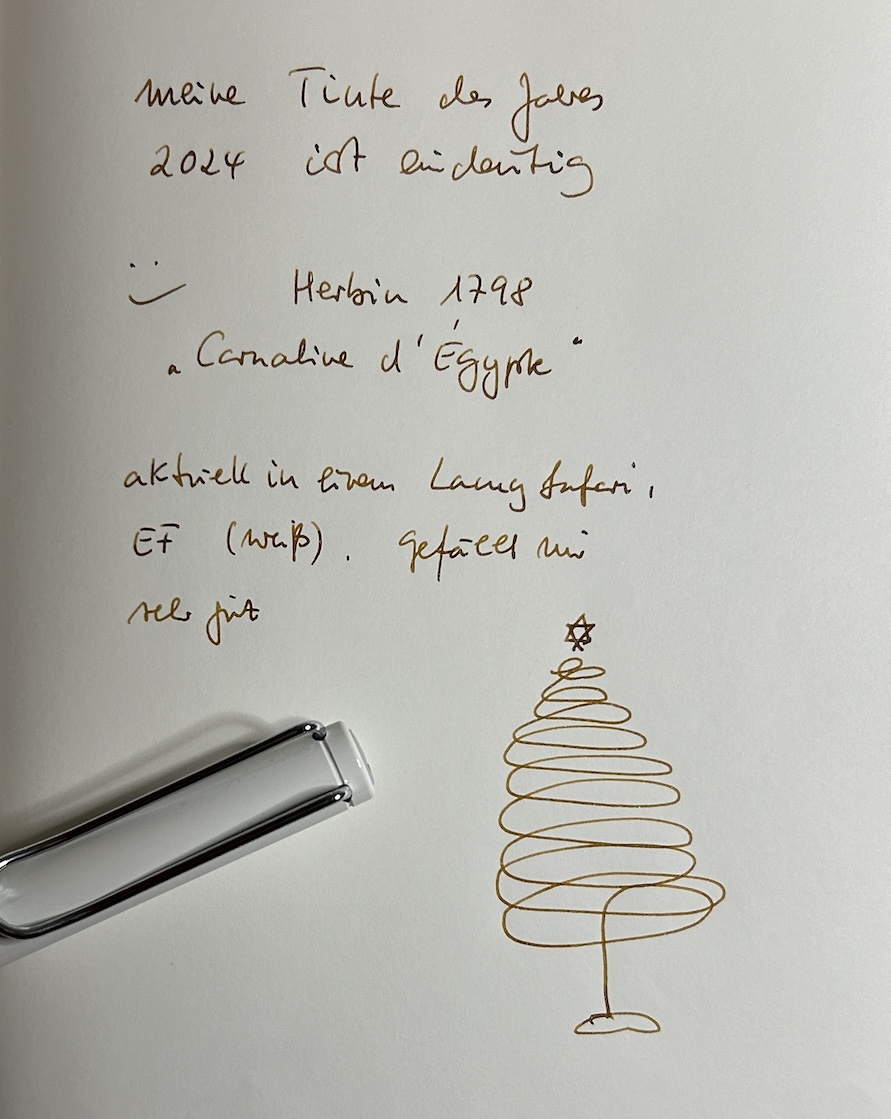 meine Tinte des Jahres
2024 ist eindeutig
Herbin 1798
„Cornaline d'Égypte“
aktuell in einem Lamy Safari,
EF (weiß). gefällt mir
sehr gut